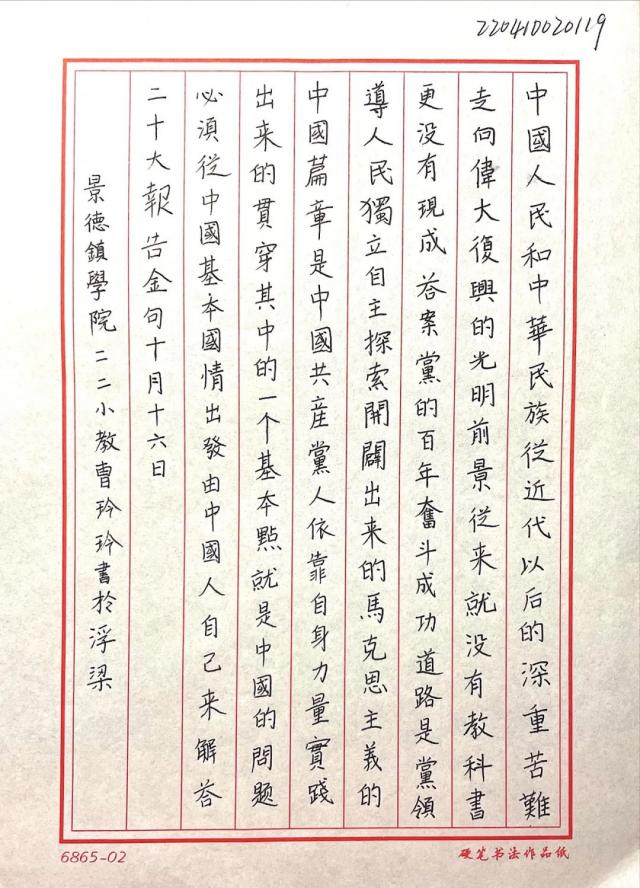 220410020119
中國人民和中華民族從近代以后的深重苦難
走向偉大復興的光明前景從来就没有教科書
更没有現成荅案黨的百年奮斗成功道路是黨領
導人民獨立自主探索開闢出来的馬克思主義的
中國篇章是中國共産黨人依靠自身力量實踐
出来的貫穿其中的一个基本點就是中國的問題
必湏從中國基本國情出發由中國人自己来解荅
二十大報告金句十月十六日
景德鎮學院二二小教曹玲玲書於浮梁
6865-02
硬笔书法作品纸